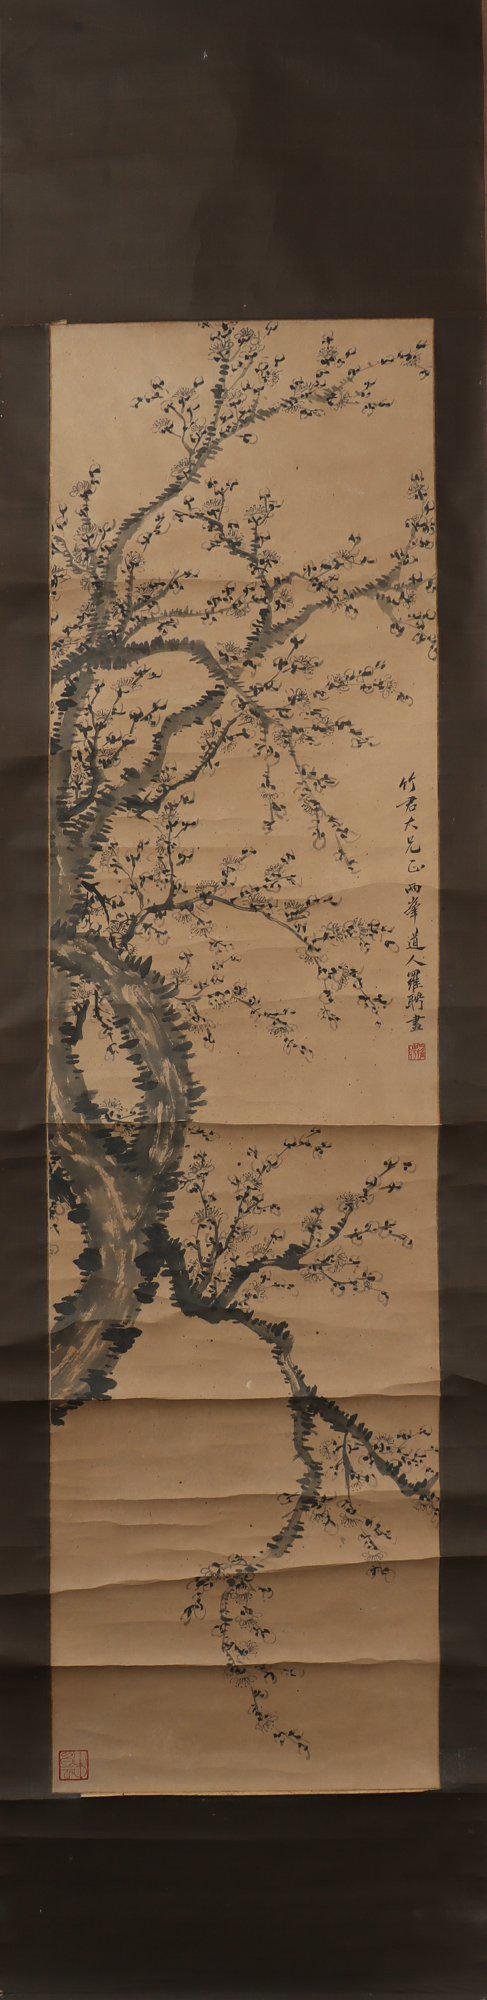 竹君大兄正两峯道人羅聘畫